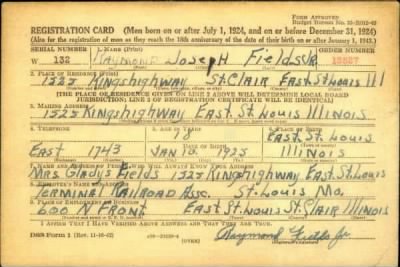 FORM APPROVED
Budget Bureau No.
REGISTRATION CARD (Men born on or after July 1, 1924, and on or before December 31, 1924)
(Also for the registration of men as they reach the 18th anniversary of the date of their birth on or after January 1, 1943.)
SERIAL NUMBER 1. NAME (Print) ORDER NUMBER
W 132 RAYMOND JOSEPH FIELDS JR. 13527
2. PLACE OF RESIDENCE (Print)
1525 KINGSHIGHWAY ST. CLAIR EAST ST. LOUIS ILL
[THE PLACE OF RESIDENCE GIVEN ON LINE 2 ABOVE WILL DETERMINE LOCAL BOARD
JURISDICTION; LINE 2 OF REGISTRATION CERTIFICATE WILL BE IDENTICAL]
3. MAILING ADDRESS
1525 KINGSHIGHWAY EAST ST. LOUIS ILLINOIS
4. TELEPHONE 5. AGE IN YEARS 6. PLACE OF BIRTH
18 EAST ST. LOUIS
DATE OF BIRTH
EAST 1743 JAN 10 1925 ILLINOIS
7. NAME AND ADDRESS OF PERSON WHO WILL ALWAYS KNOW YOUR ADDRESS
MRS GLADYS FIELDS 1525 KINGSHIGHWAY EAST ST LOUIS
8. EMPLOYER'S NAME AND ADDRESS
TERMINAL RAILROAD ASSC. ST. LOUIS MO.
9. PLACE OF EMPLOYMENT OR BUSINESS
600 N FRONT EAST ST. LOUIS ST. CLAIR ILLINOIS
I AFFIRM THAT I HAVE VERIFIED ABOVE ANSWERS AND THAT THEY ARE TRUE.
DSS Form 1 (Rev. 11-16-42) (OVER) Raymond Fields Jr.